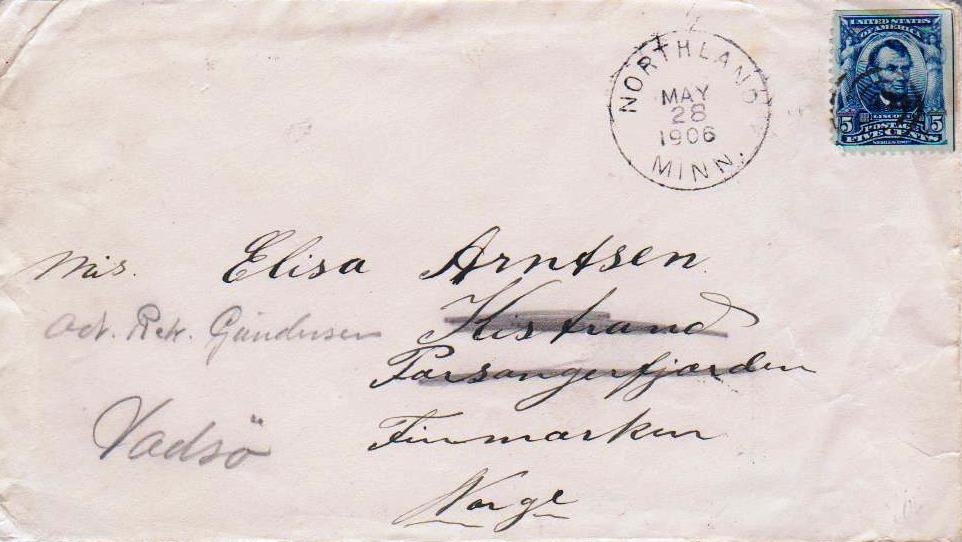 NORTHLAND
MAY
28
1906
MINN.
UNITED STATES
OF AMERICA
LINCOLN
5 POSTAGE 5
FIVE CENTS
SERIES 1902
Mis. Elisa Arntsen
Kistrand
Adr. Gundersen
Porsangerfjorden
Vadsö
Finmarken
Norge